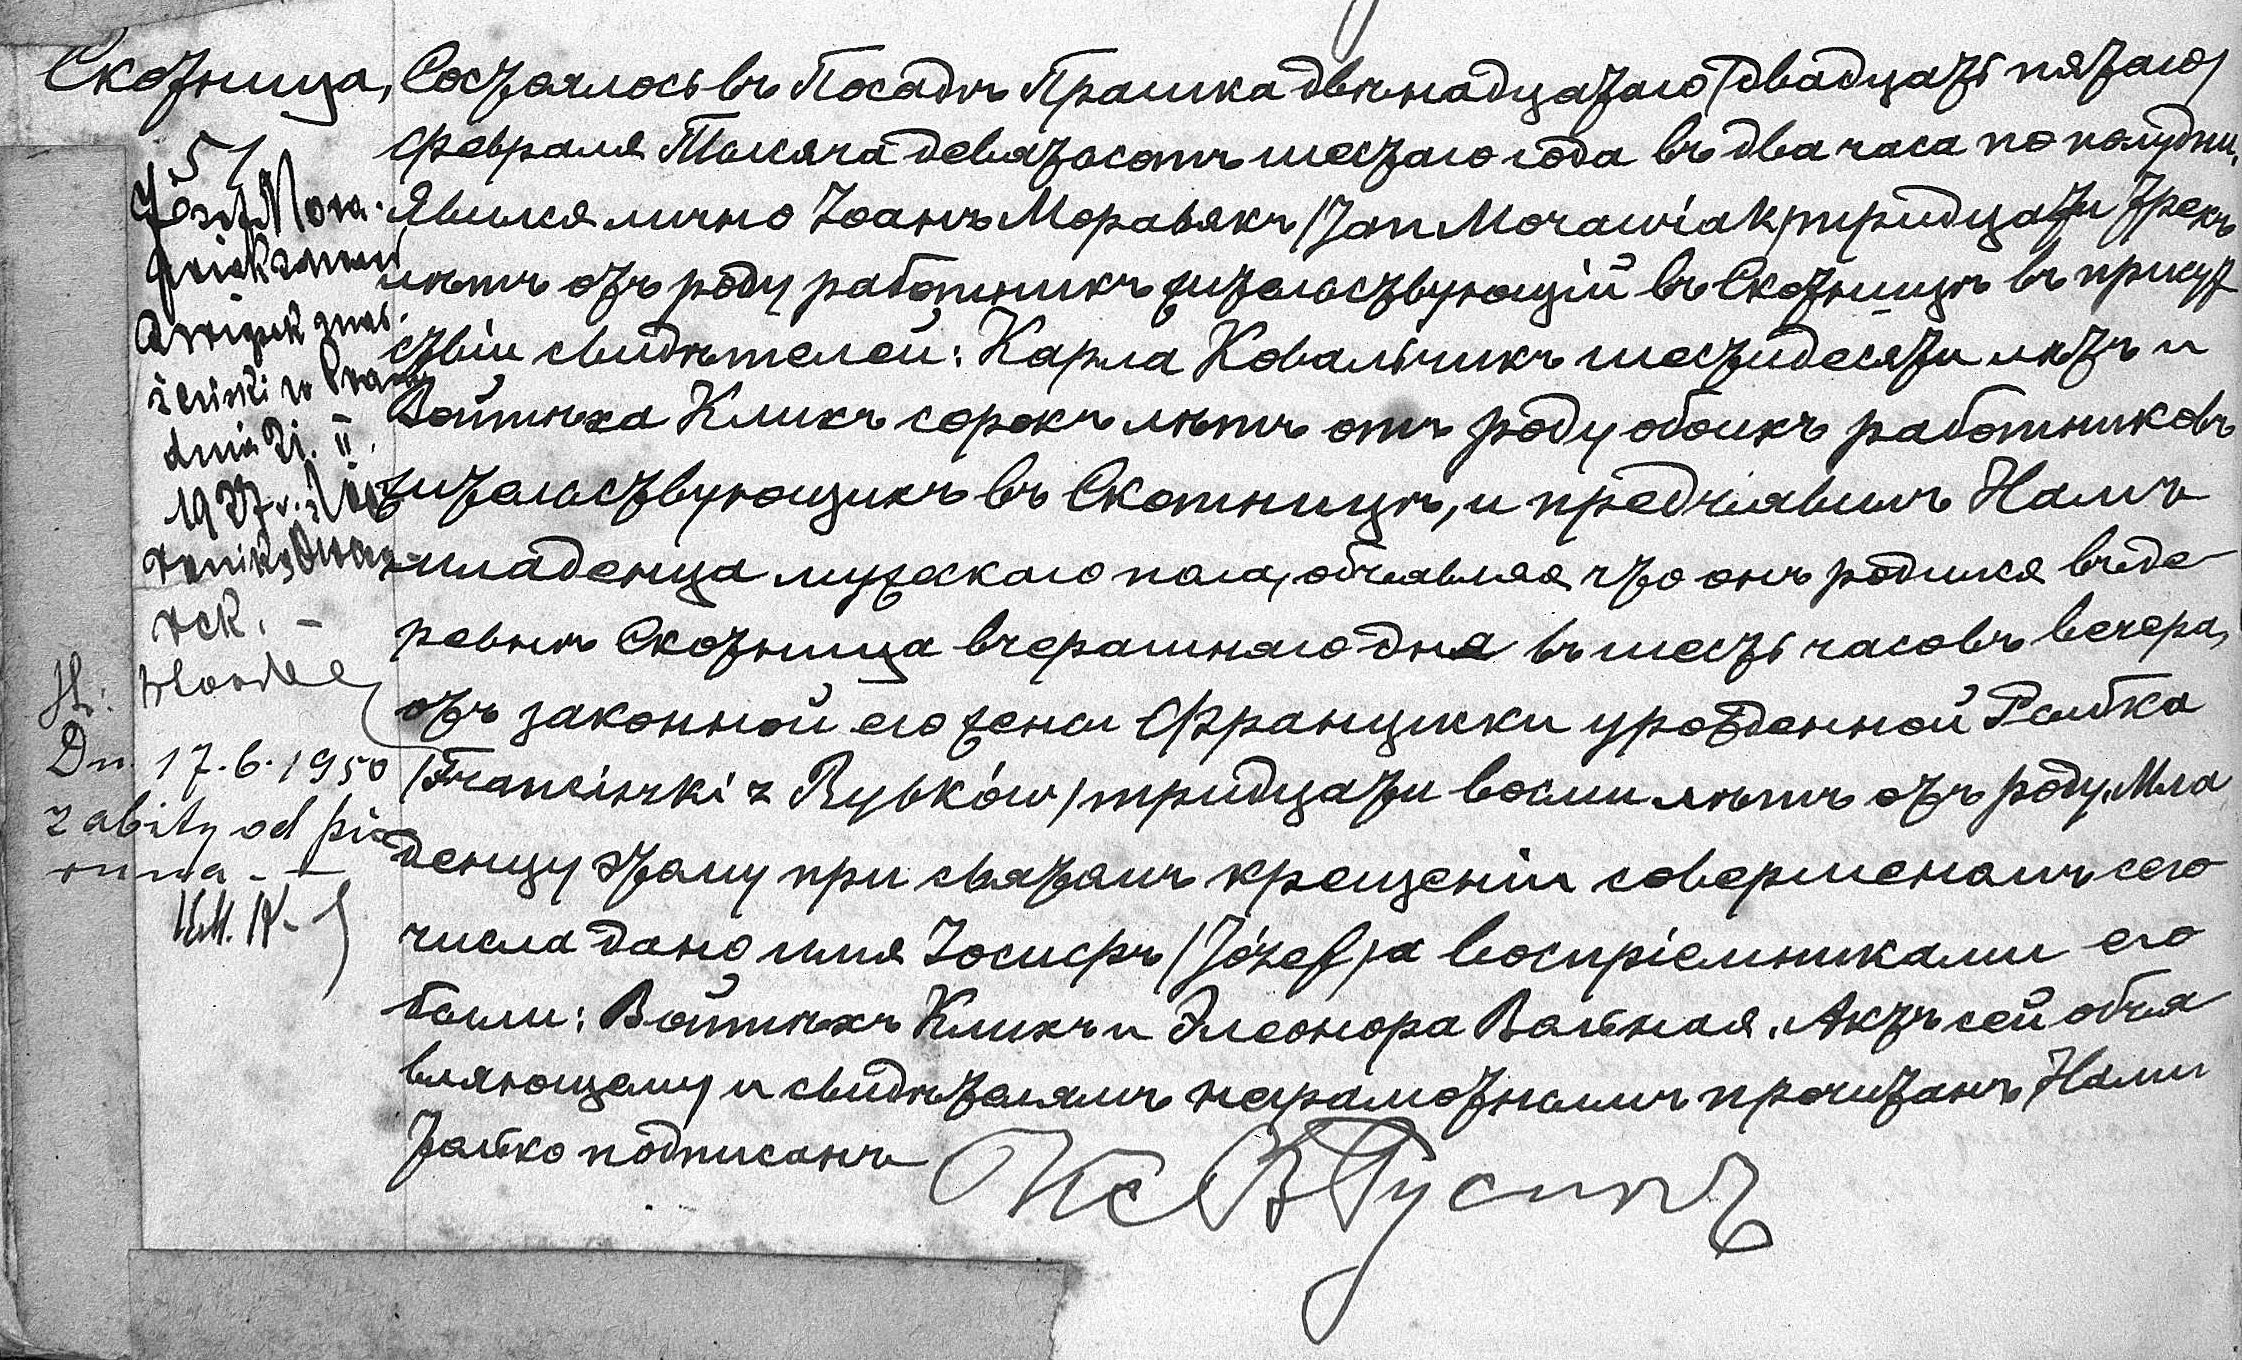 Скотница,
51
Józef Mora-
wiak zawarł
związek mał-
żeński w
dnia 21. II.
1927 r. z
Dn. 17.6.1950
zabity od pio-
runa. —
Состоялось въ Посадѣ Прашка двѣнадцатаго /двадцать пятаго/
Февраля Тысяча девятьсотъ шестаго года въ два часа по полудни.
Явился лично Іоанъ Моравякъ /Jan Morawiak/ тридцати трехъ
лѣтъ отъ роду работникъ жительствующій въ Скотницѣ въ присут
ствіи свидѣтелей: Карла Ковальчикъ шестидесяти лѣтъ и
Войтѣха Кликъ сорокъ лѣтъ отъ роду обоихъ работниковъ
жительствующихъ въ Скотницѣ, и предъявилъ Намъ
младенца мужескаго пола, объявляя что онъ родился въ де
ревнѣ Скотница вчерашняго дня въ шесть часовъ вечера,
отъ законной его жены Францишки урожденной Рыбка
/Franciszki z Rybków/ тридцати восьми лѣтъ отъ роду. Мла
денцу этому при святомъ крещеніи совершеномъ сего
числа дано имя Іосифъ /Józef/ а воспріемниками его
были: Войтѣхъ Кликъ и Элеонора Вольная. Актъ сей объя
вляющему и свидѣтелямъ неграмотнымъ прочитанъ, Нами
только подписанъ